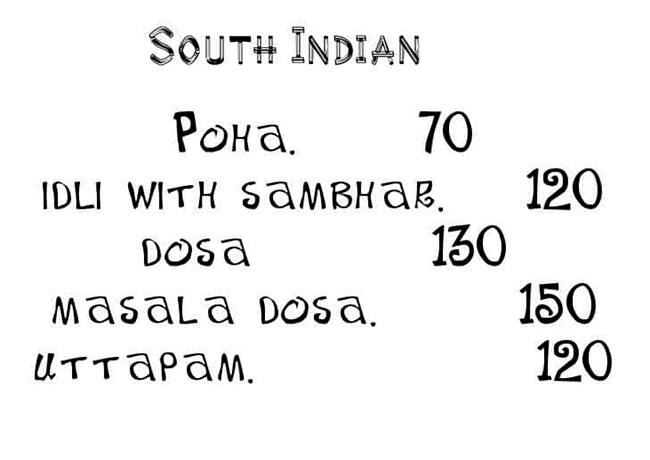 South Indian
Poha. 70
idli with sambhar. 120
dosa 130
masala dosa. 150
uttapam. 120